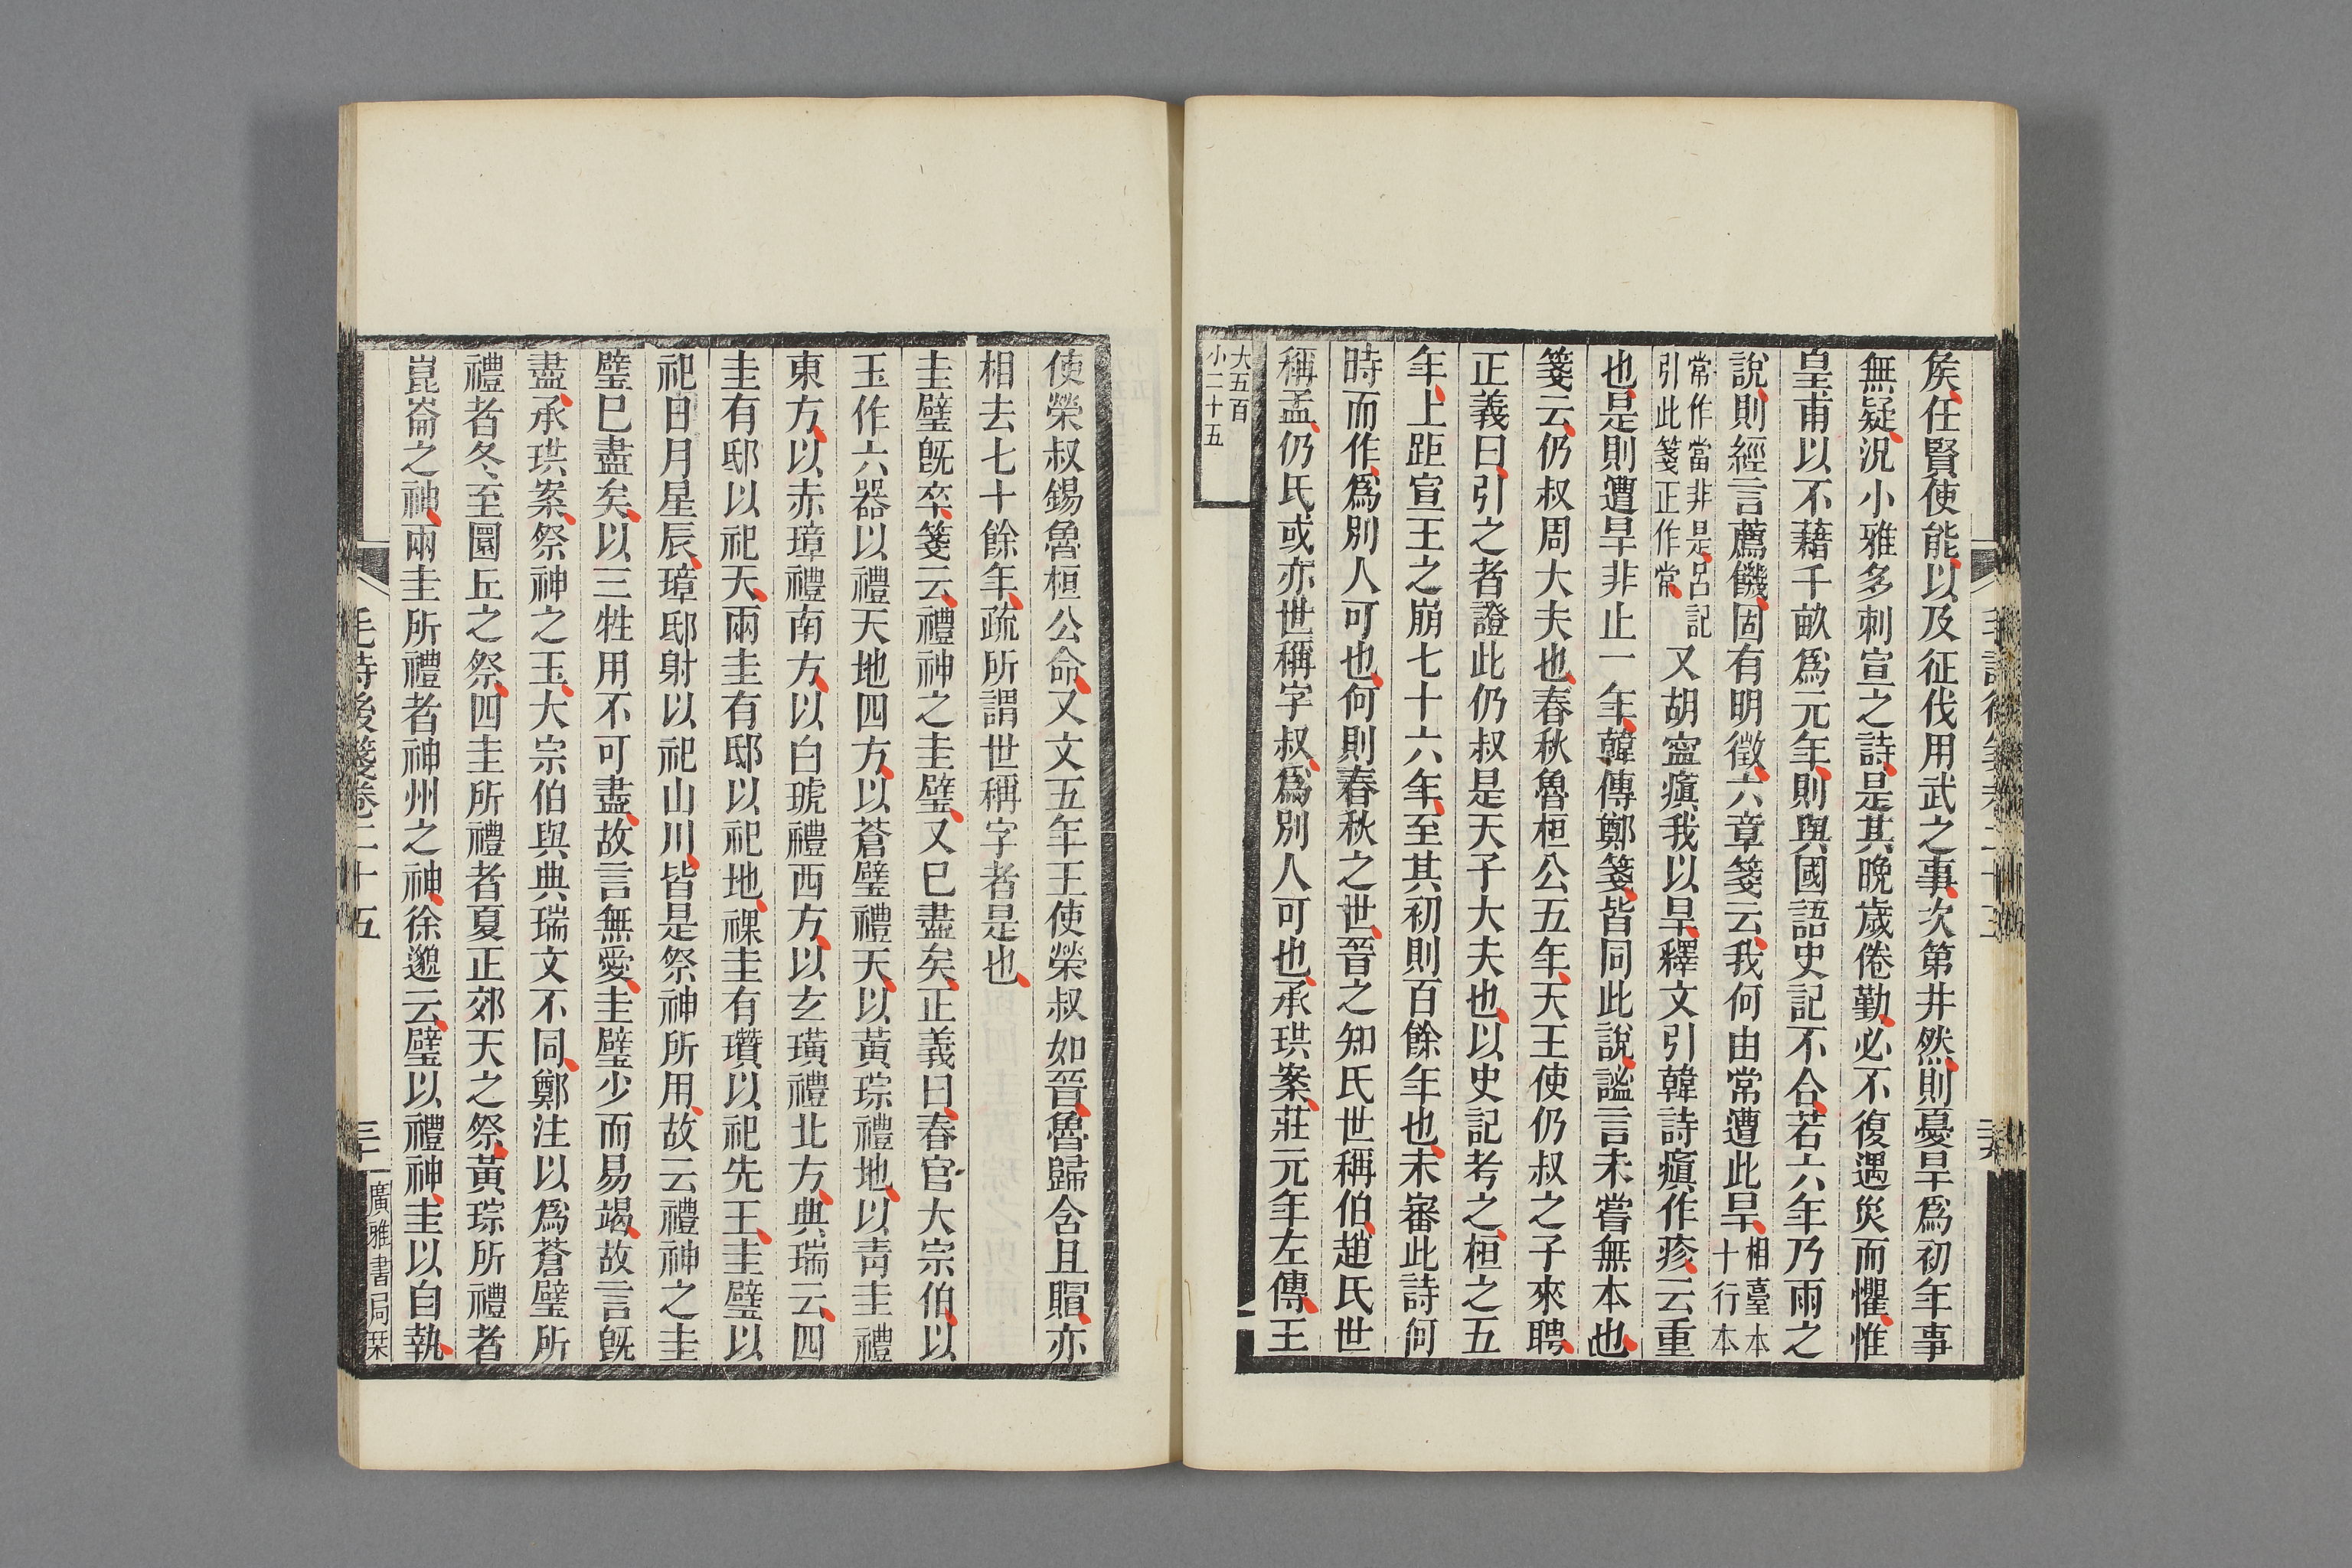 矦任賢使能以及征伐用武之事次第井然則憂旱爲初年事
無疑況小雅多刺宣之詩是其晚歲倦勤必不復遇災而懼惟
皇甫以不藉千畝爲元年則與國語史記不合若六年乃雨之
說則經言薦饑固有明徵六章箋云我何由常遭此旱相臺本
十行本
常作當非是呂記
引此箋正作常又胡寧瘨我以旱釋文引韓詩瘨作疹云重
也是則遭旱非止一年韓傳鄭箋皆同此說謐言未嘗無本也
箋云仍叔周大夫也春秋魯桓公五年天王使仍叔之子來聘
正義曰引之者證此仍叔是天子大夫也以史記考之桓之五
年上距宣王之崩七十六年至其初則百餘年也未審此詩何
時而作爲別人可也何則春秋之世晉之知氏世稱伯趙氏世
稱孟仍氏或亦世稱字叔爲別人可也承珙案莊元年左傳王
大五百
小二十五
使榮叔錫魯桓公命又文五年王使榮叔如晉魯歸含且賵亦
相去七十餘年疏所謂世稱字者是也
圭璧旣卒箋云禮神之圭璧又巳盡矣正義曰春官大宗伯以
玉作六器以禮天地四方以蒼璧禮天以黃琮禮地以靑圭禮
東方以赤璋禮南方以白琥禮西方以玄璜禮北方典瑞云四
圭有邸以祀天兩圭有邸以祀地祼圭有瓚以祀先王圭璧以
祀日月星辰璋邸射以祀山川皆是祭神所用故云禮神之圭
璧巳盡矣以三牲用不可盡故言無愛圭璧少而易竭故言旣
盡承珙案祭神之玉大宗伯與典瑞文不同鄭注以爲蒼璧所
禮者冬至圜丘之祭四圭所禮者夏正郊天之祭黃琮所禮者
崑崙之神兩圭所禮者神州之神徐邈云璧以禮神圭以自執
毛詩後箋卷二十五
三十
廣雅書局栞